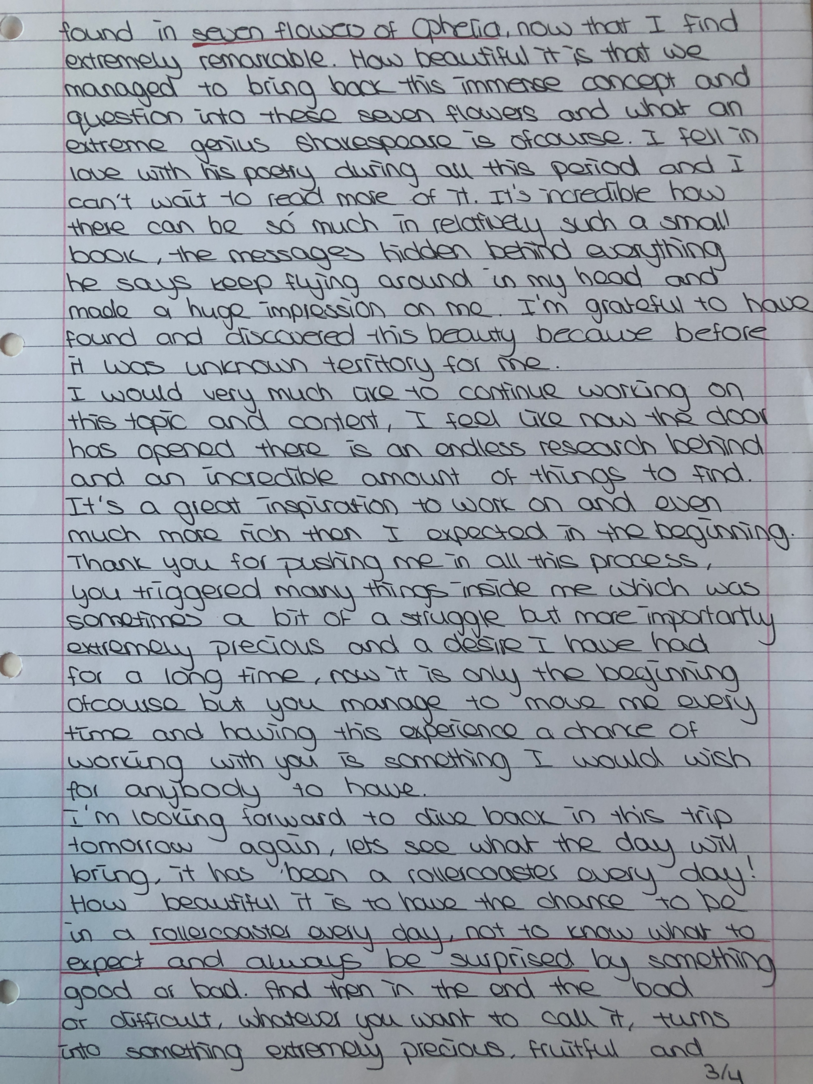 found in seven flowers of Ophelia, now that I find
extremely remarkable. How beautiful it is that we
managed to bring back this immense concept and
question into these seven flowers and what an
extreme genius Shakespeare is ofcourse. I fell in
love with his poetry during all this period and I
can't wait to read more of it. It's incredible how
there can be so much in relatively such a small
book, the messages hidden behind everything
he says keep flying around in my head and
made a huge impression on me. I'm grateful to have
found and discovered this beauty because before
it was unknown territory for me.
I would very much like to continue working on
this topic and content, I feel like now the door
has opened there is an endless research behind
and an incredible amount of things to find.
It's a great inspiration to work on and even
much more rich then I expected in the beginning.
Thank you for pushing me in all this process,
you triggered many things inside me which was
sometimes a bit of a struggle but more importantly
extremely precious and a desire I have had
for a long time, now it is only the beginning
ofcourse but you manage to move me every
time and having this experience a chance of
working with you is something I would wish
for anybody to have.
I'm looking forward to dive back in this trip
tomorrow again, lets see what the day will
bring, it has been a rollercoaster every day!
How beautiful it is to have the chance to be
in a rollercoaster every day, not to know what to
expect and always be surprised by something
good or bad. And then in the end the bad
or difficult, whatever you want to call it, turns
into something extremely precious, fruitful and
3/4